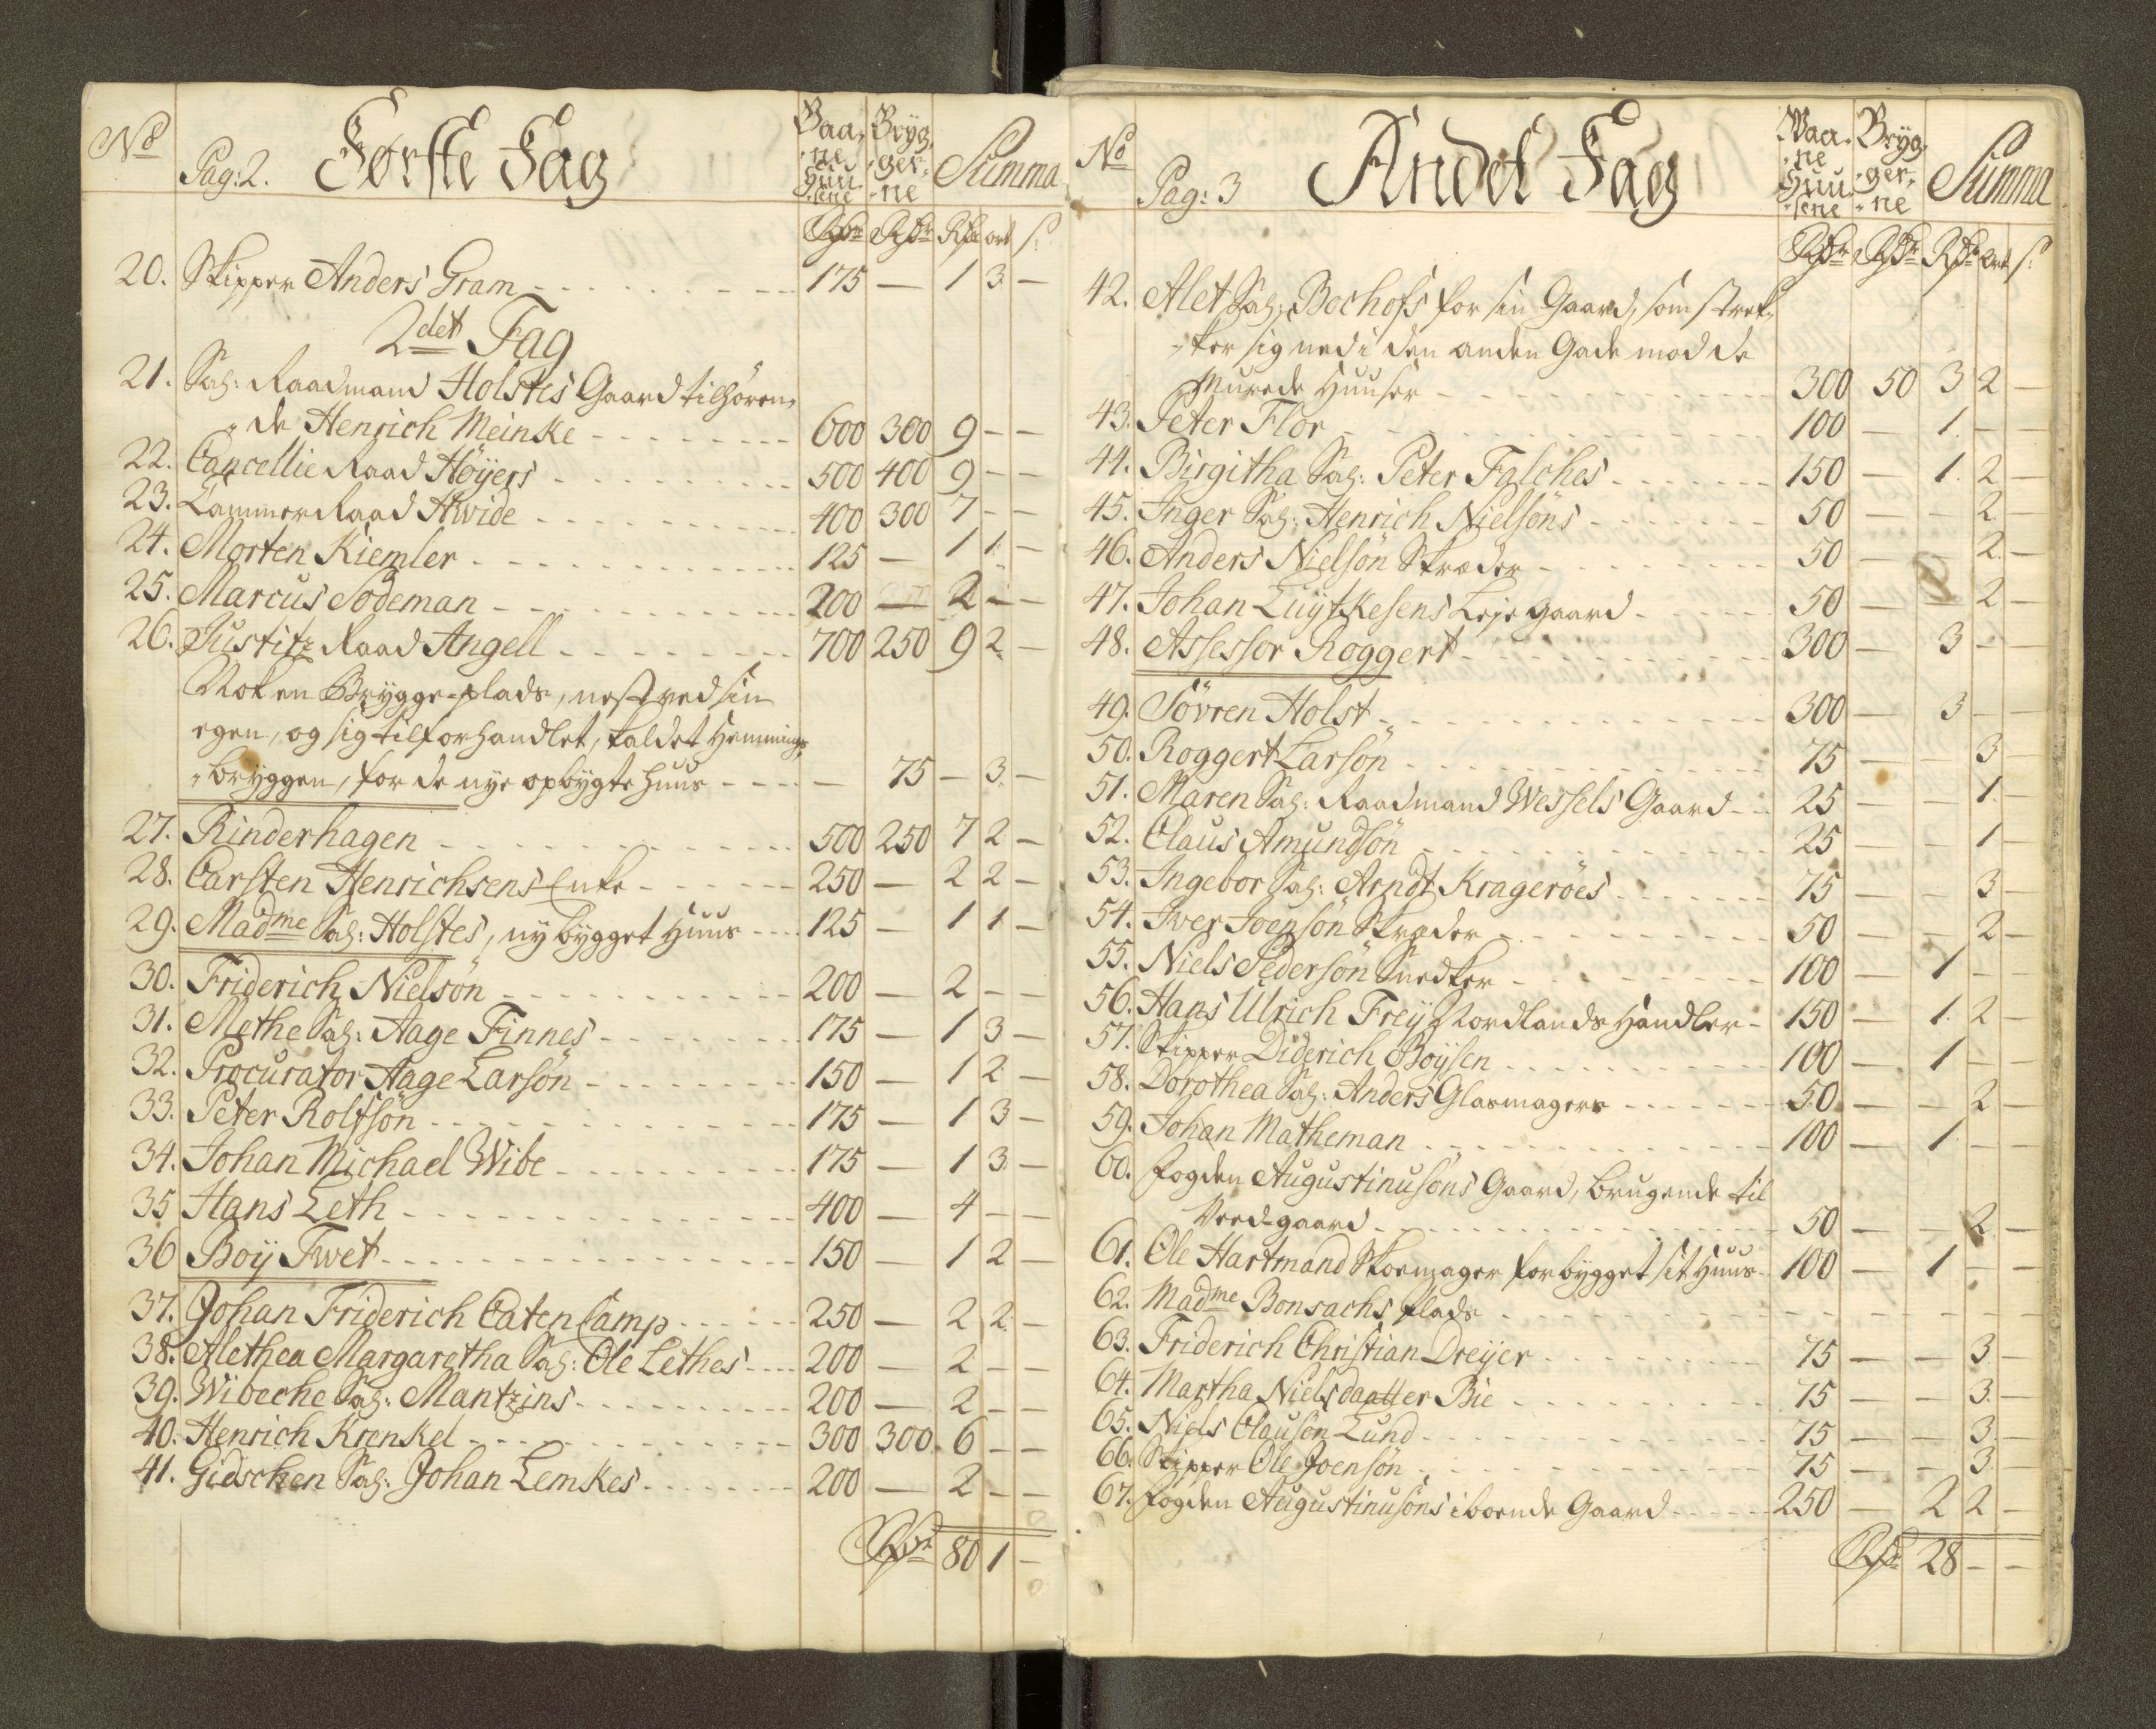 No
Pag: 2. Første Fag
Baa-
-ne
Huu-
-sene
Bryg-
-ger-
-ne
Summa
Rdr Rdr Rdr ort s:
20. Skipper Anders Gram 175 — 1 3 —
2det Fag
21. Sal: Raadmand Holstes Gaard tilhören-
-de Henrich Meinke 600 300 9 — —
22. Cancellie Raad Høÿers 500 400 9 — —
23. Cammer Raad Hvide 400 300 7 — —
24. Morten Kiemler 125 — 1 1 —
25. Marcus Sodeman 200 — 2 — —
26. Justitz Raad Angell 700 250 9 2 —
Nok en Brÿgge-plads, nest ved sin
egen, og sig tilforhandlet, kaldet Hemmings-
-brÿggen, for de nÿe opbÿgte huus — 75 — 3 —
27. Rinderhagen 500 250 7 2 —
28. Carsten Henrichsens Enke 250 — 2 2 —
29. Madme Sal: Holstes, nÿ bÿgget Huus 125 — 1 1 —
30. Friderich Nielsön 200 — 2 — —
31. Methe Sal: Aage Finnes 175 — 1 3 —
32. Procurator Aage Larsön 150 — 1 2 —
33. Peter Rolfsön 175 — 1 3 —
34. Johan Michael Wibe 175 — 1 3 —
35 Hans Leth 400 — 4 — —
36 Boÿ Tvet 150 — 1 2 —
37. Johan Friderich CatenCamp 250 — 2 2 —
38. Alethea Margaretha Sal: Ole Lethes 200 — 2 — —
39. Wibeche Sal: Mantzins 200 — 2 — —
40. Henrich Krenkel 300 300 6 — —
41. Gidschen Sal: Johan Lemkes 200 — 2 — —
Rdr 80 1 —
No
Pag: 3 Andet Fag
Waa-
-ne
Huu-
-sene
Bryg-
-ger-
-ne
Summa
Rdr Rdr Rdr ort s:
42. Alet Sal: Bochofs for sin Gaard, som strek-
-ker sig ned i den anden Gade mod de
Murede Huuser 300 50 3 2 —
43. Peter Flor 100 — 1 — —
44. Birgitha Sal: Peter Falches 150 — 1 2 —
45. Inger Sal: Henrich Nielsöns 50 — — 2 —
46. Anders Nielsön Skræder 50 — — 2 —
47. Johan Luÿtkesens Leje gaard 50 — — 2 —
48. Assessor Roggert 300 — 3 — —
49. Sövren Holst 300 — 3 — —
50. Roggert Larsön 75 — — 3 —
51. Maren Sal: Raadmand Wessels Gaard 25 — — 1 —
52. Claus Amundsön 25 — — 1 —
53. Ingebor Sal: Arndt Krageröes 75 — — 3 —
54. Iver Joensön Skræder 50 — — 2 —
55. Niels Pedersön Snedker 100 — 1 — —
56. Hans Ulrich Freÿ Nordlands Handler 150 — 1 2 —
57. Skipper Diderich Boÿsen 100 — 1 — —
58. Dorothea Sal: Anders Glasmagers 50 — — 2 —
59. Johan Matheman 100 — 1 — —
60. Fogden Augustinusöns Gaard, brugende til
Veed-gaard 50 — — 2 —
61. Ole Hartmand Skoemager forbÿgget sit Huus 100 — 1 — —
62. Madme Bonsachs plads — — — — —
63. Friderich Christian Dreÿer 75 — — 3 —
64. Martha Nielsdaatter Bie 75 — — 3 —
65. Niels Clausön Lund 75 — — 3 —
66. Skipper Ole Joensön 75 — — 3 —
67. Fogden Augustinusöns iboende Gaard 250 — 2 2 —
Rdr 28 — —